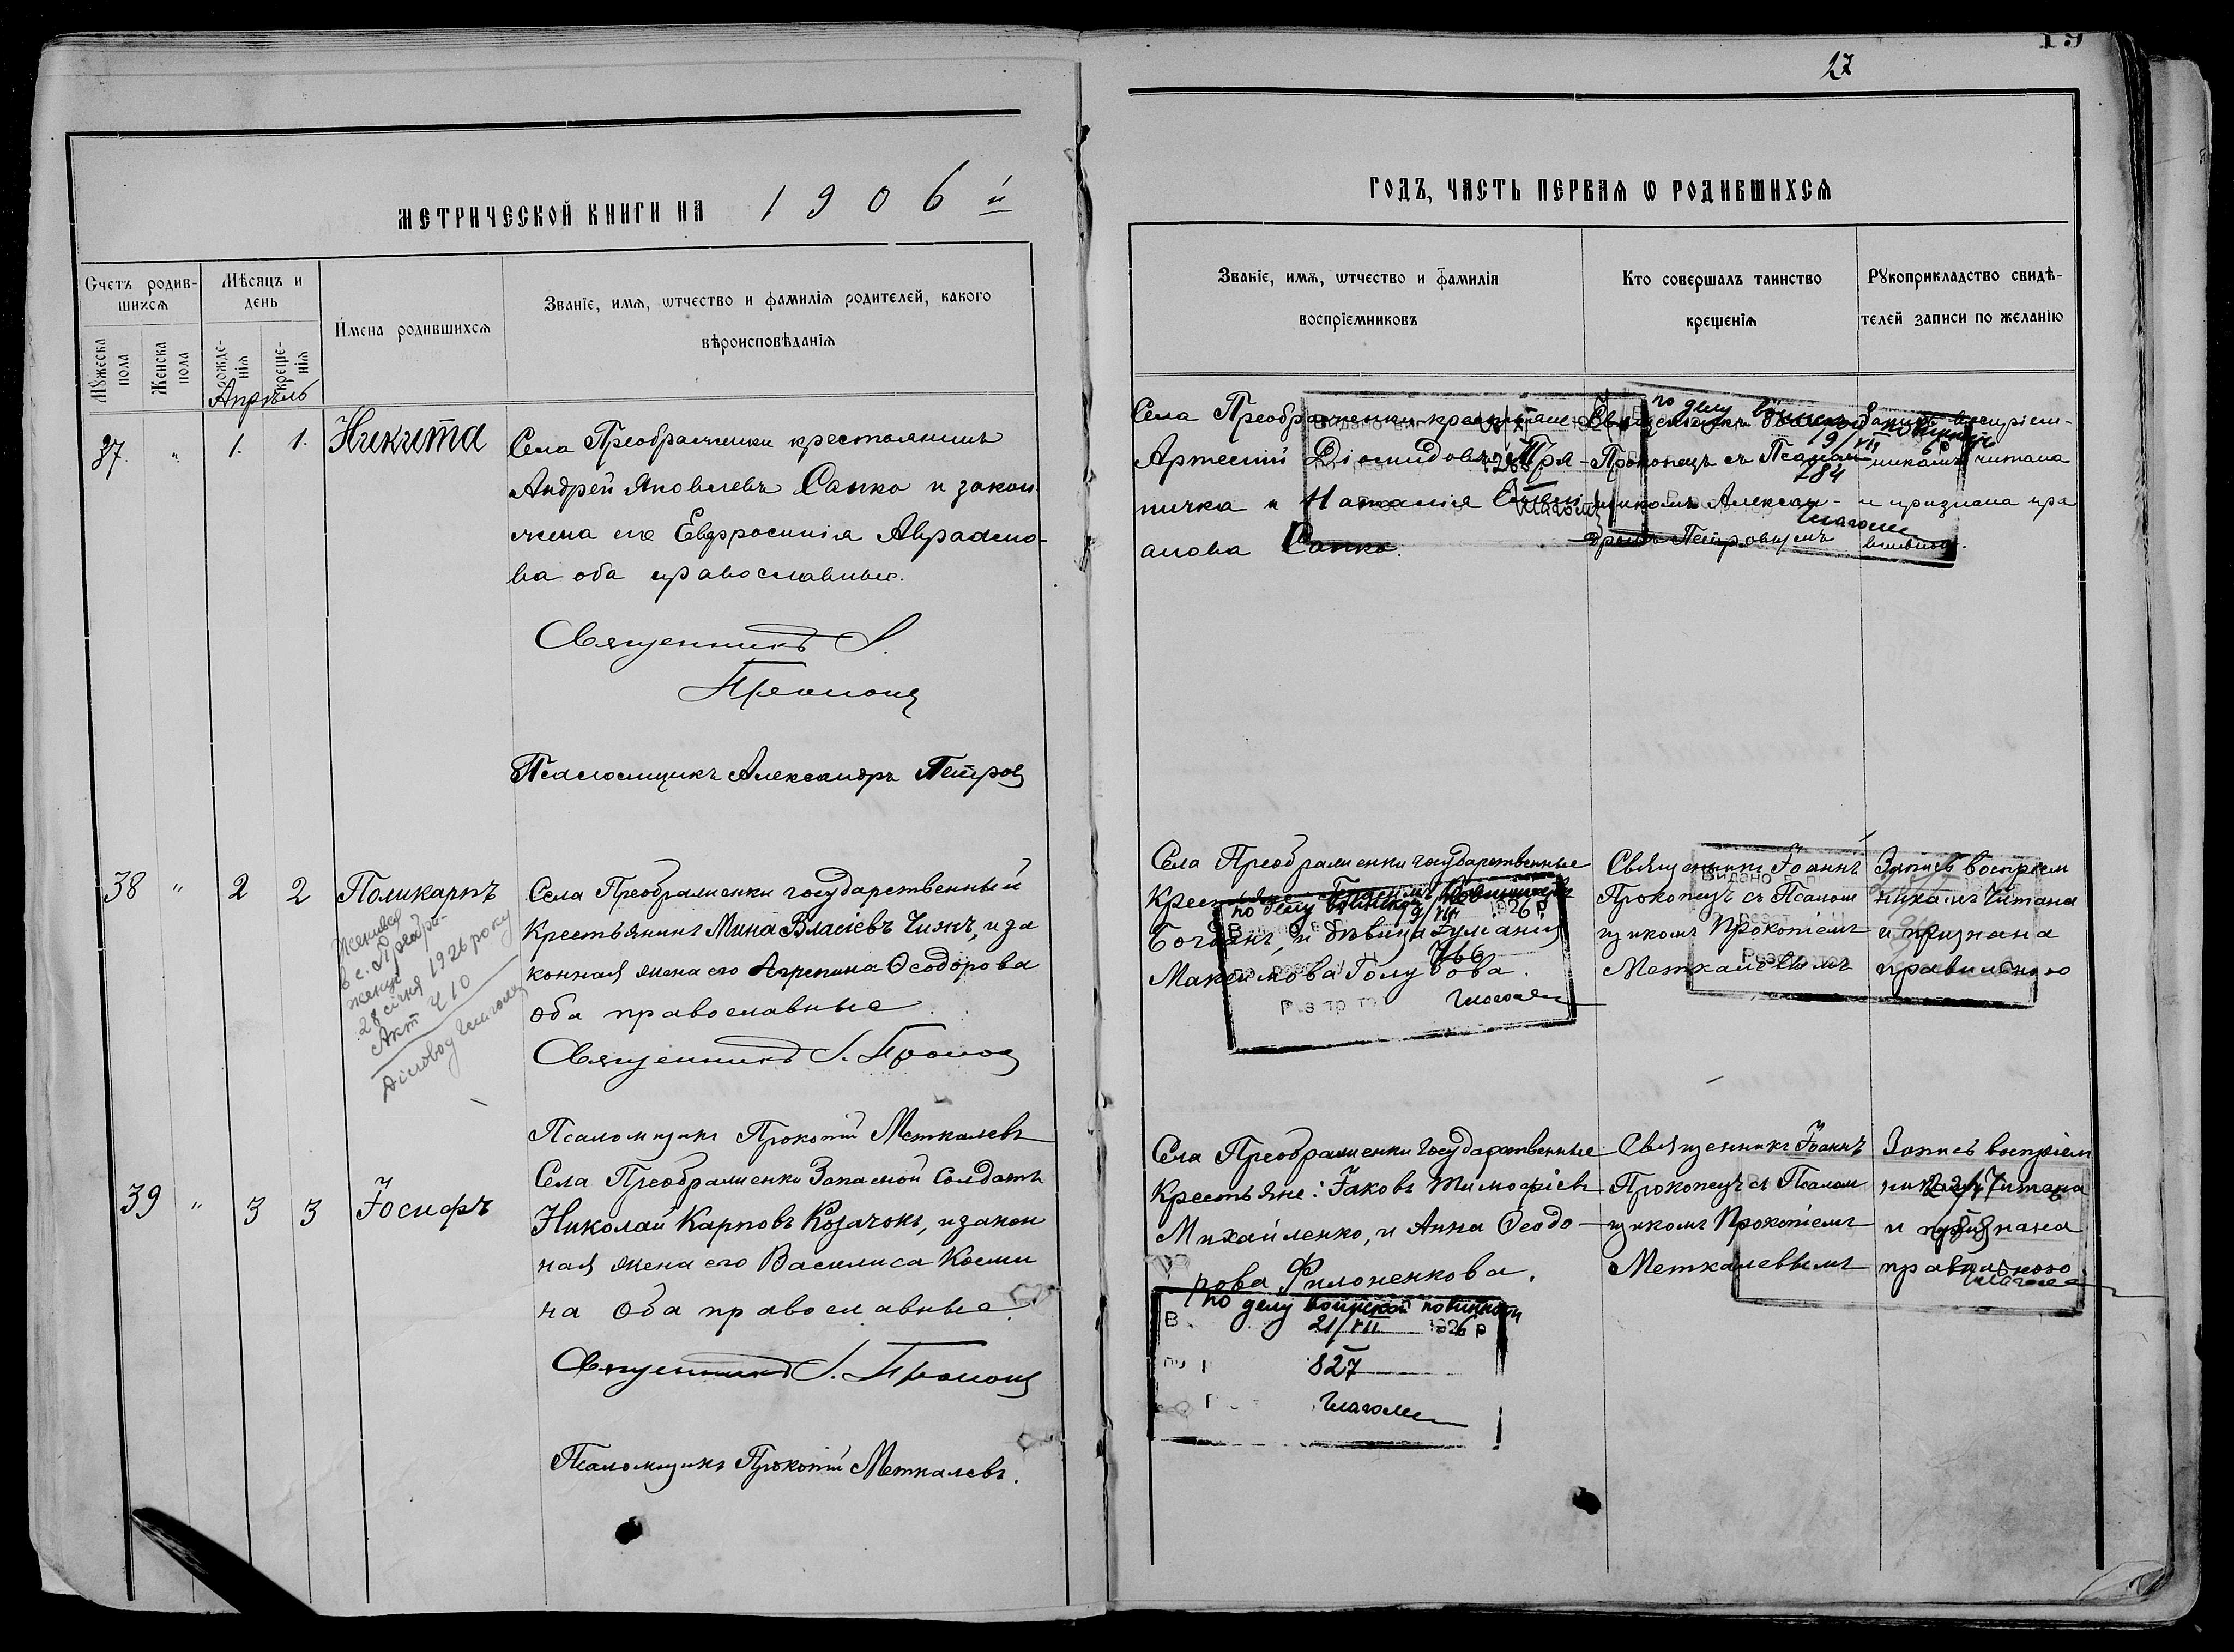 19
27
МЕТРИЧЕСКОЙ КНИГИ НА 1906й
ГОДЪ, ЧАСТЬ ПЕРВАЯ Ѡ РОДИВШИХСЯ
Счетъ родив-
шихся
Мѣсяцъ и
день
Имена родившихся
Званіе, имя, ѿчество и фамилія родителей, какого
вѣроисповѣданія
Мꙋжеска
пола
Женска
пола
рожде-
нія
креще-
нія
Званіе, имя, ѿчество и фамилія
воспріемниковъ
Кто совершалъ таинство
крещенія
Рꙋкоприкладство свидѣ-
телей записи по желанію
Апрѣль
37. " 1. 1. Никита
Села Преображенки крестьянинъ
Андрей Яковлевъ Сапко и закон.
жена его Евфросинія Авраамо-
ва оба православные.
Священникъ І.
Прокопец
Псаломщикъ Александръ Петров
Села Преображенки крестьяне
Артемій Діомидовъ Тря-
пичка и Наталія
анова Сапко.
Священникъ Іоаннъ
Прокопецъ съ Псалом-
щикомъ Алексан-
дромъ Петровымъ
Запись воспріем-
никамъ читана
и признана пра
вильною.
по делу воинской повинности
19/VII
784
Глаголе
38 " 2 2 Поликарпъ
Женився
в с. Преобра-
женці
28 січня 1926 року
Акт Ч 10
Діловод Глаголе
Села Преображенки государственный
Крестьянинъ Мина Власіевъ Чижъ, и за
конная жена его Агрепина Ѳеодорова
оба православные
Священникъ І. Прокопец
Псаломщикъ Прокопій Меткалевъ
Села Преображенки государственные
Крестьяне
Богданъ, и дѣвица
Максимова Голубова.
по делу воинской повинности
9/VII 1926 р
766
Глаголе
Священникъ Іоаннъ
Прокопецъ съ Псалом
щикомъ Прокопіемъ
Меткалевымъ
Запись воспріем
никамъ Читана
и признана
правильною
39 " 3 3 Іосифъ
Села Преображенки Запасной Солдатъ
Николай Карповъ Козачокъ, и закон
ная жена его Василиса Косми
на Оба православные.
Священникъ І. Прокопец
Псаломщикъ Прокопій Меткалевъ.
Села Преображенки государственные
Крестьяне: Іаковъ Тимофіевъ
Михайленко, и Анна Ѳеодо-
рова Филоненкова.
по делу воинской повинности
21/VII 1926 р
827
Глаголе
Священникъ Іоаннъ
Прокопецъ съ Псалом
щикомъ Прокопіемъ
Меткалевымъ
Запись воспріем
никамъ Читана
и признана
правильною
Глаголе